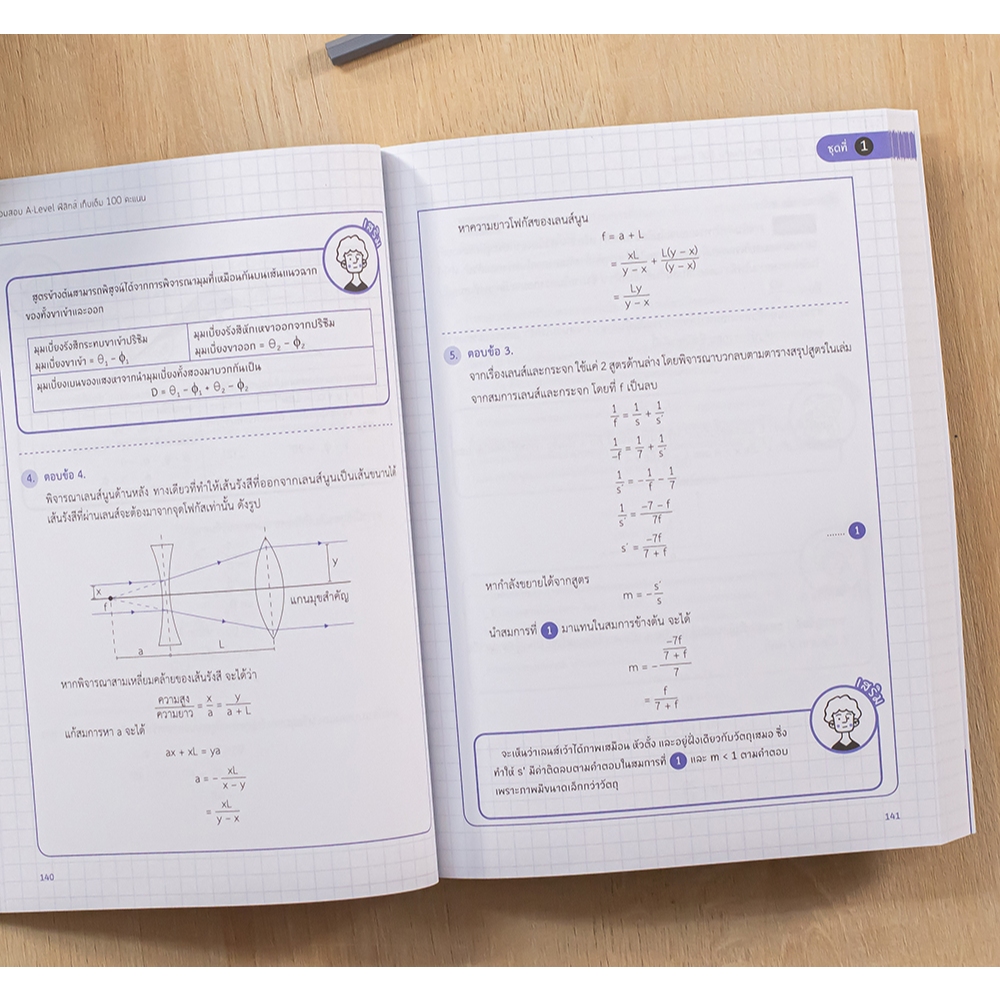 อบสอบ A-Level ฟิสิกส์ เก็บเต็ม 100 คะแนน
เสริม
สูตรข้างต้นสามารถพิสูจน์ได้จากการพิจารณามุมที่เหมือนกันบนเส้นแนวฉาก
ของทั้งขาเข้าและออก
มุมเบี่ยงรังสีกระทบขาเข้าปริซึม
มุมเบี่ยงขาเข้า = θ₁ – ϕ₁
มุมเบี่ยงรังสีหักเหขาออกจากปริซึม
มุมเบี่ยงขาออก = θ₂ – ϕ₂
มุมเบี่ยงเบนของแสงหาจากนำมุมเบี่ยงทั้งสองมาบวกกันเป็น
D = θ₁ – ϕ₁ + θ₂ – ϕ₂
4. ตอบข้อ 4.
พิจารณาเลนส์นูนด้านหลัง ทางเดียวที่ทำให้เส้นรังสีที่ออกจากเลนส์นูนเป็นเส้นขนานได้
เส้นรังสีที่ผ่านเลนส์จะต้องมาจากจุดโฟกัสเท่านั้น ดังรูป
x
f
y
แกนมุขสำคัญ
a
L
หากพิจารณาสามเหลี่ยมคล้ายของเส้นรังสี จะได้ว่า
ความสูง/ความยาว = x/a = y/(a + L)
แก้สมการหา a จะได้
ax + xL = ya
a = – xL/(x – y)
= xL/(y – x)
140
ชุดที่ 1
หาความยาวโฟกัสของเลนส์นูน
f = a + L
= xL/(y – x) + L(y – x)/(y – x)
= Ly/(y – x)
5. ตอบข้อ 3.
จากเรื่องเลนส์และกระจก ใช้แค่ 2 สูตรด้านล่าง โดยพิจารณาบวกลบตามตารางสรุปสูตรในเล่ม
จากสมการเลนส์และกระจก โดยที่ f เป็นลบ
1/f = 1/s + 1/s'
1/-f = 1/7 + 1/s'
1/s' = – 1/f – 1/7
1/s' = (–7 – f)/7f
s' = –7f/(7 + f) ....... 1
หากำลังขยายได้จากสูตร
m = – s'/s
นำสมการที่ 1 มาแทนในสมการข้างต้น จะได้
m = – (–7f/(7 + f))/7
= f/(7 + f)
เสริม
จะเห็นว่าเลนส์เว้าได้ภาพเสมือน หัวตั้ง และอยู่ฝั่งเดียวกับวัตถุเสมอ ซึ่ง
ทำให้ s' มีค่าติดลบตามคำตอบในสมการที่ 1 และ m < 1 ตามคำตอบ
เพราะภาพมีขนาดเล็กกว่าวัตถุ
141